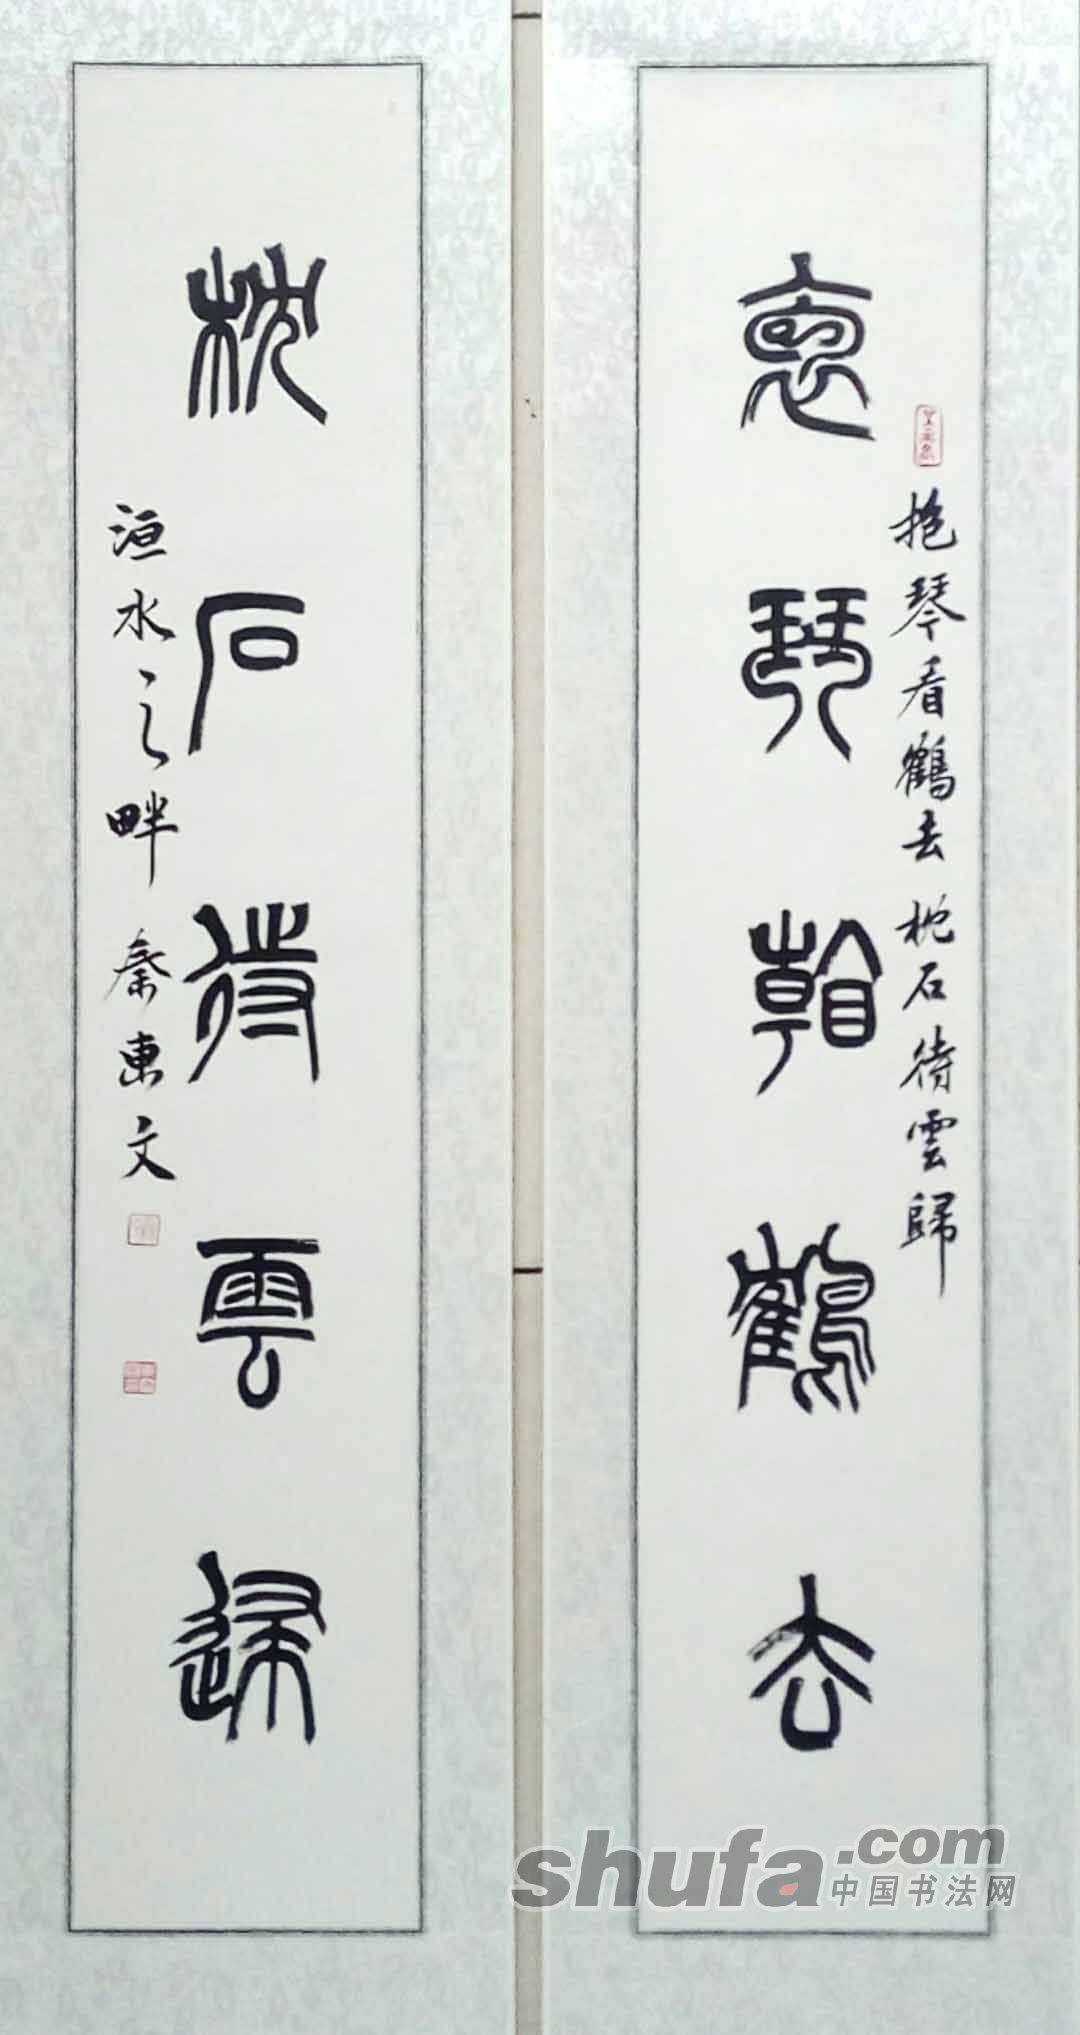 裒琴翰鶴去
抱琴看鶴去枕石待雲歸
枕石待雲歸
洹水之畔秦東文
shufa.com
中国书法网